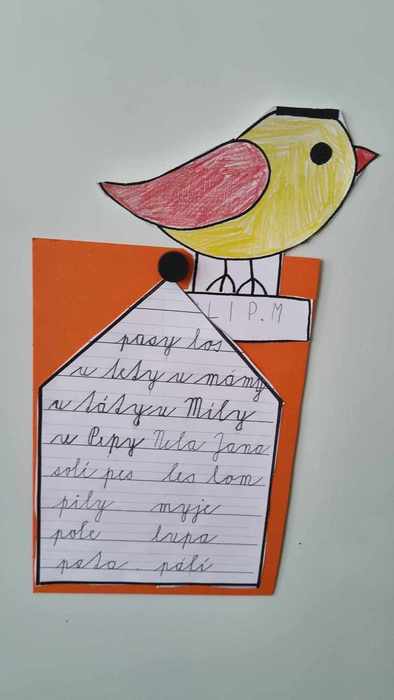 LIP.M
pasy los
u tety u mámy
u táty u Mily
u Pepy Nela Jana
solí pes les lom
pily myje
pole lupa
pata pálí